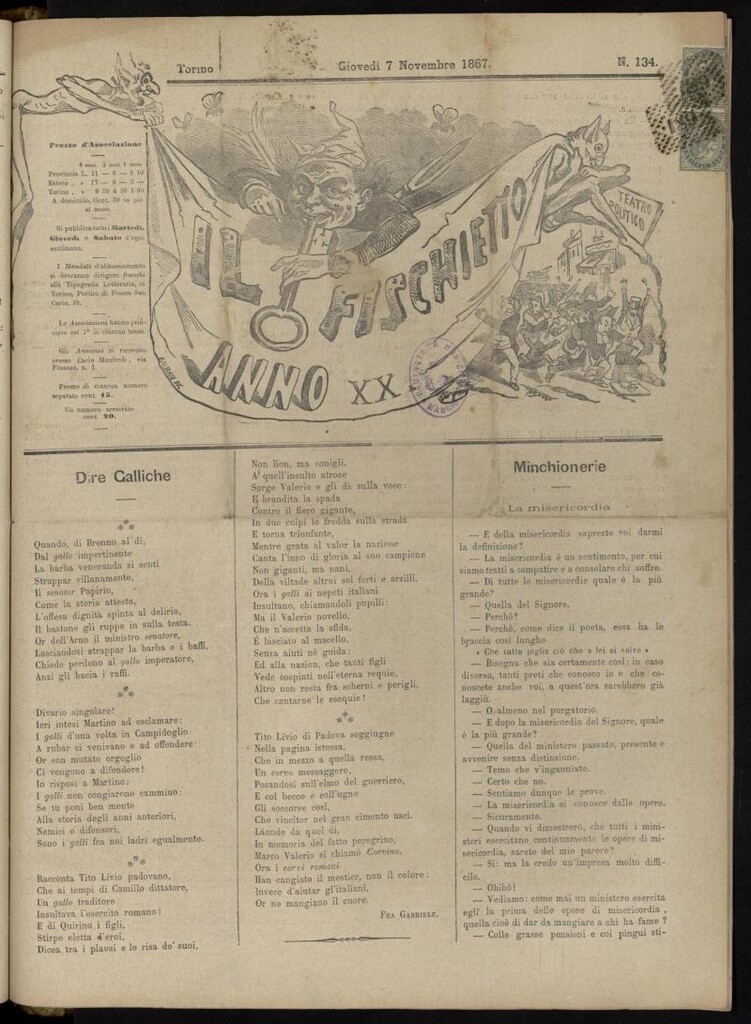 Torino
Giovedì 7 Novembre 1867.
N. 134.
Prezzo d'Associazione
6 mesi 3 mesi 1 mese
Provincia L. 11 — 6 — 2 10
Estero . » 17 — 9 — 3 —
Torino . » 8 50 4 50 1 60
A domicilio, Cent. 30 in più
al mese.
Si pubblica tutti i Martedì,
Giovedì e Sabato d'ogni
settimana.
I Mandati d'abbuonamento
si dovranno dirigere franchi
alla Tipografia Letteraria, in
Torino, Portici di Piazza San
Carlo, 10.
Le Associazioni hanno prin-
cipio col 1° di ciascun mese.
Gli Annunzi si ricevono
presso Carlo Manfredi, via
Finanze, n. 1.
Prezzo di ciascun numero
separato cent. 15.
Un numero arretrato
cent. 20.
IL FISCHIETTO
ANNO XX
TEATRO
POLITICO
Dire Galliche
Quando, di Brenno ai dì,
Dal gallo impertinente
La barba veneranda si sentì
Strappar villanamente,
Il senator Papirio,
Come la storia attesta,
L'offesa dignità spinta al delirio,
Il bastone gli ruppe in sulla testa.
Or dell'Arno il ministro senatore,
Lasciandosi strappar la barba e i baffi,
Chiede perdono al gallo imperatore,
Anzi gli bacia i raffi.
Divario singolare!
Ieri intesi Martino ad esclamare:
I galli d'una volta in Campidoglio
A rubar ci venivano e ad offendere:
Or con mutato orgoglio
Ci vengono a difendere!
Io risposi a Martino:
I galli non congiarono cammino:
Se tu poni ben mente
Alla storia degli anni anteriori,
Nemici o difensori,
Sono i galli fra noi ladri egualmente.
Racconta Tito Livio padovano,
Che ai tempi di Camillo dittatore,
Un gallo traditore
Insultava l'esercito romano:
E di Quirino i figli,
Stirpe eletta d'eroi,
Dicea tra i plausi e le risa de' suoi,
Non lion, ma conigli.
A quell'insulto atroce
Sorge Valerio e gli dà sulla voce:
E brandita la spada
Contro il fiero gigante,
In due colpi lo fredda sulla strada
E torna trionfante,
Mentre grata al valor la nazione
Canta l'inno di gloria al suo campione
Non giganti, ma nani,
Della viltade altrui sol forti e arzilli,
Ora i galli ai nepoti italiani
Insultano, chiamandoli pupilli:
Ma il Valerio novello,
Che n'accetta la sfida,
È lasciato al macello,
Senza aiuti nè guida:
Ed alla nazion, che tanti figli
Vede sospinti nell'eterna requie,
Altro non resta fra scherni e perigli,
Che cantarne le esequie!
Tito Livio di Padova soggiugne
Nella pagina istessa,
Che in mezzo a quella ressa,
Un corvo messaggero,
Posandosi sull'elmo del guerriero,
E col becco e coll'ugne
Gli soccorse così,
Che vincitor nel gran cimento uscì.
Làonde da quel dì,
In memoria del fatto peregrino,
Marco Valerio si chiamò Corvino.
Ora i corvi romani
Han cangiato il mestier, non il colore:
Invece d'aiutar gl'italiani,
Or ne mangiano il cuore.
FRA GABRIELE.
Minchionerie
La misericordia
— E della misericordia sapreste voi darmi
la definizione?
— La misericordia è un sentimento, per cui
siamo tratti a compatire e a consolare chi soffre.
— Di tutte le misericordie quale è la più
grande?
— Quella del Signore.
— Perchè?
— Perchè, come dice il poeta, essa ha le
braccia così lunghe
« Che tutto piglia ciò che a lei si volve »
— Bisogna che sia certamente così: in caso
diverso, tanti preti che conosco io e che co-
noscete anche voi, a quest'ora sarebbero già
laggiù.
— O almeno nel purgatorio.
— E dopo la misericordia del Signore, quale
è la più grande?
— Quella del ministero passato, presente e
avvenire senza distinzione.
— Temo che v'inganniate.
— Certo che no.
— Sentiamo dunque le prove.
— La misericordia si conosce dalle opere.
— Sicuramente.
— Quando vi dimostrerò, che tutti i mini-
steri esercitano continuamente le opere di mi-
sericordia, sarete del mio parere?
— Sì: ma la credo un'impresa molto diffi-
cile.
— Ohibò!
— Vediamo: come mai un ministero esercita
egli la prima delle opere di misericordia,
quella cioè di dar da mangiare a chi ha fame?
— Colle grasse pensioni e coi pingui sti-